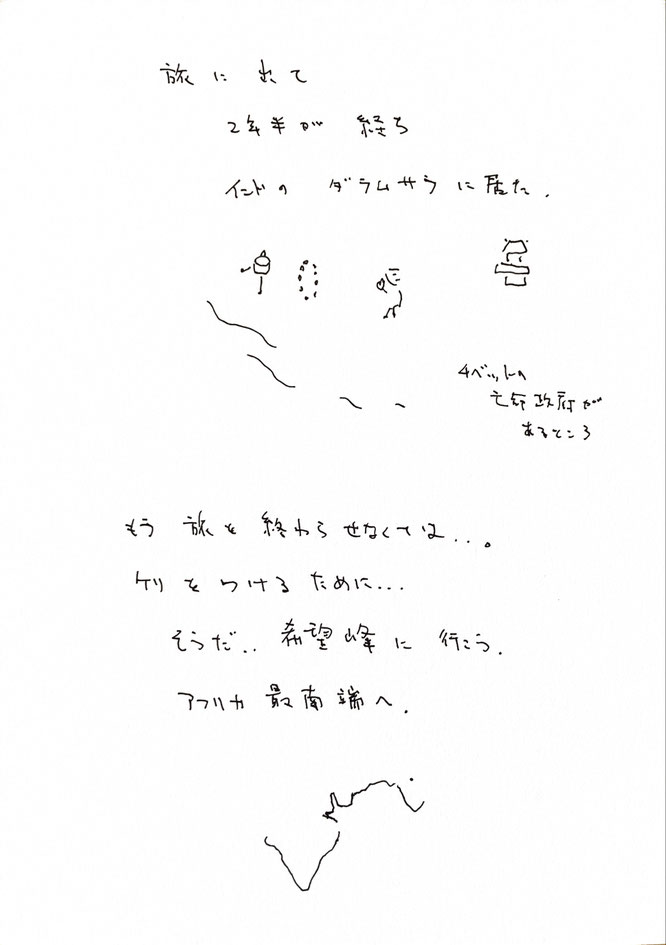 旅に出て
2年半が経ち
インドのダラムサラに居た.
チベットの
亡命政府が
あるところ
もう旅を終わらせなくては...。
ケリをつけるために...
そうだ..希望峰に行こう.
アフリカ最南端へ.